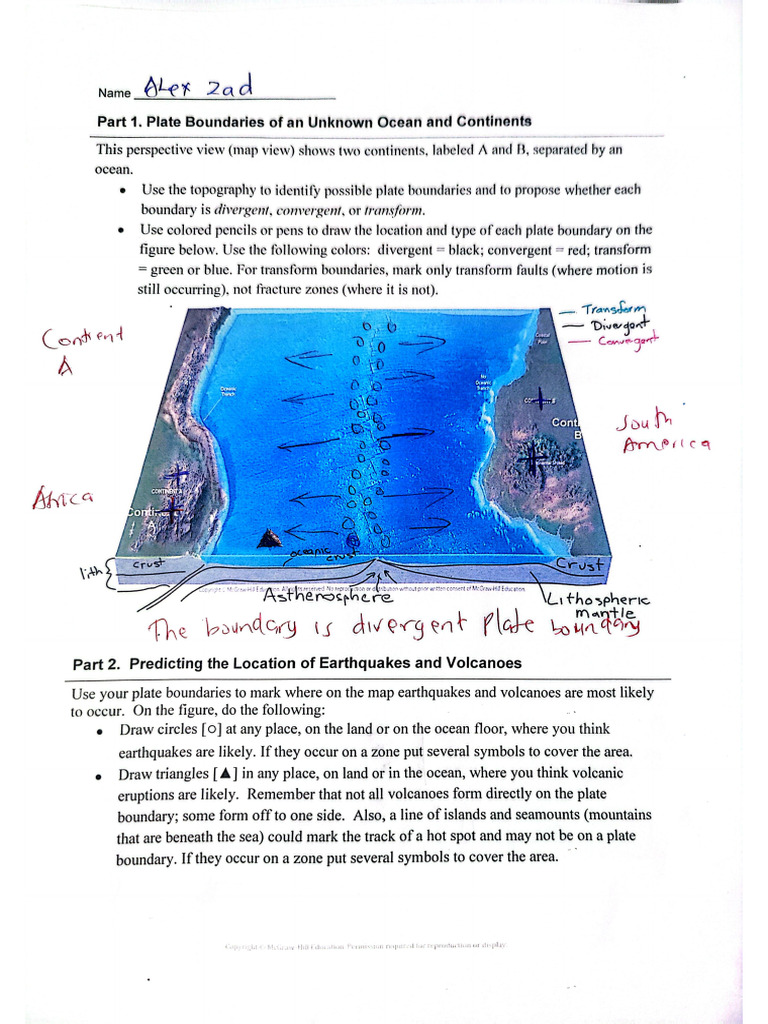 Name Alex Zad
Part 1. Plate Boundaries of an Unknown Ocean and Continents
This perspective view (map view) shows two continents, labeled A and B, separated by an
ocean.
• Use the topography to identify possible plate boundaries and to propose whether each
boundary is divergent, convergent, or transform.
• Use colored pencils or pens to draw the location and type of each plate boundary on the
figure below. Use the following colors: divergent = black; convergent = red; transform
= green or blue. For transform boundaries, mark only transform faults (where motion is
still occurring), not fracture zones (where it is not).
Transform
Divergent
Convergent
Contient
A
Oceanic
Trench
No
Oceanic
Trench
Coastal
Plain
CONTINENT B
Conti
B
South
America
Africa
CONTINENT A
Continent
A
lith
crust
oceanic
crust
Crust
Copyright © McGraw-Hill Education. All rights reserved. No reproduction or distribution without prior written consent of McGraw-Hill Education.
Asthenosphere
Lithospheric
mantle
The boundary is divergent Plate boundary
Part 2. Predicting the Location of Earthquakes and Volcanoes
Use your plate boundaries to mark where on the map earthquakes and volcanoes are most likely
to occur. On the figure, do the following:
• Draw circles [○] at any place, on the land or on the ocean floor, where you think
earthquakes are likely. If they occur on a zone put several symbols to cover the area.
• Draw triangles [▲] in any place, on land or in the ocean, where you think volcanic
eruptions are likely. Remember that not all volcanoes form directly on the plate
boundary; some form off to one side. Also, a line of islands and seamounts (mountains
that are beneath the sea) could mark the track of a hot spot and may not be on a plate
boundary. If they occur on a zone put several symbols to cover the area.
Copyright © McGraw-Hill Education. Permission required for reproduction or display.